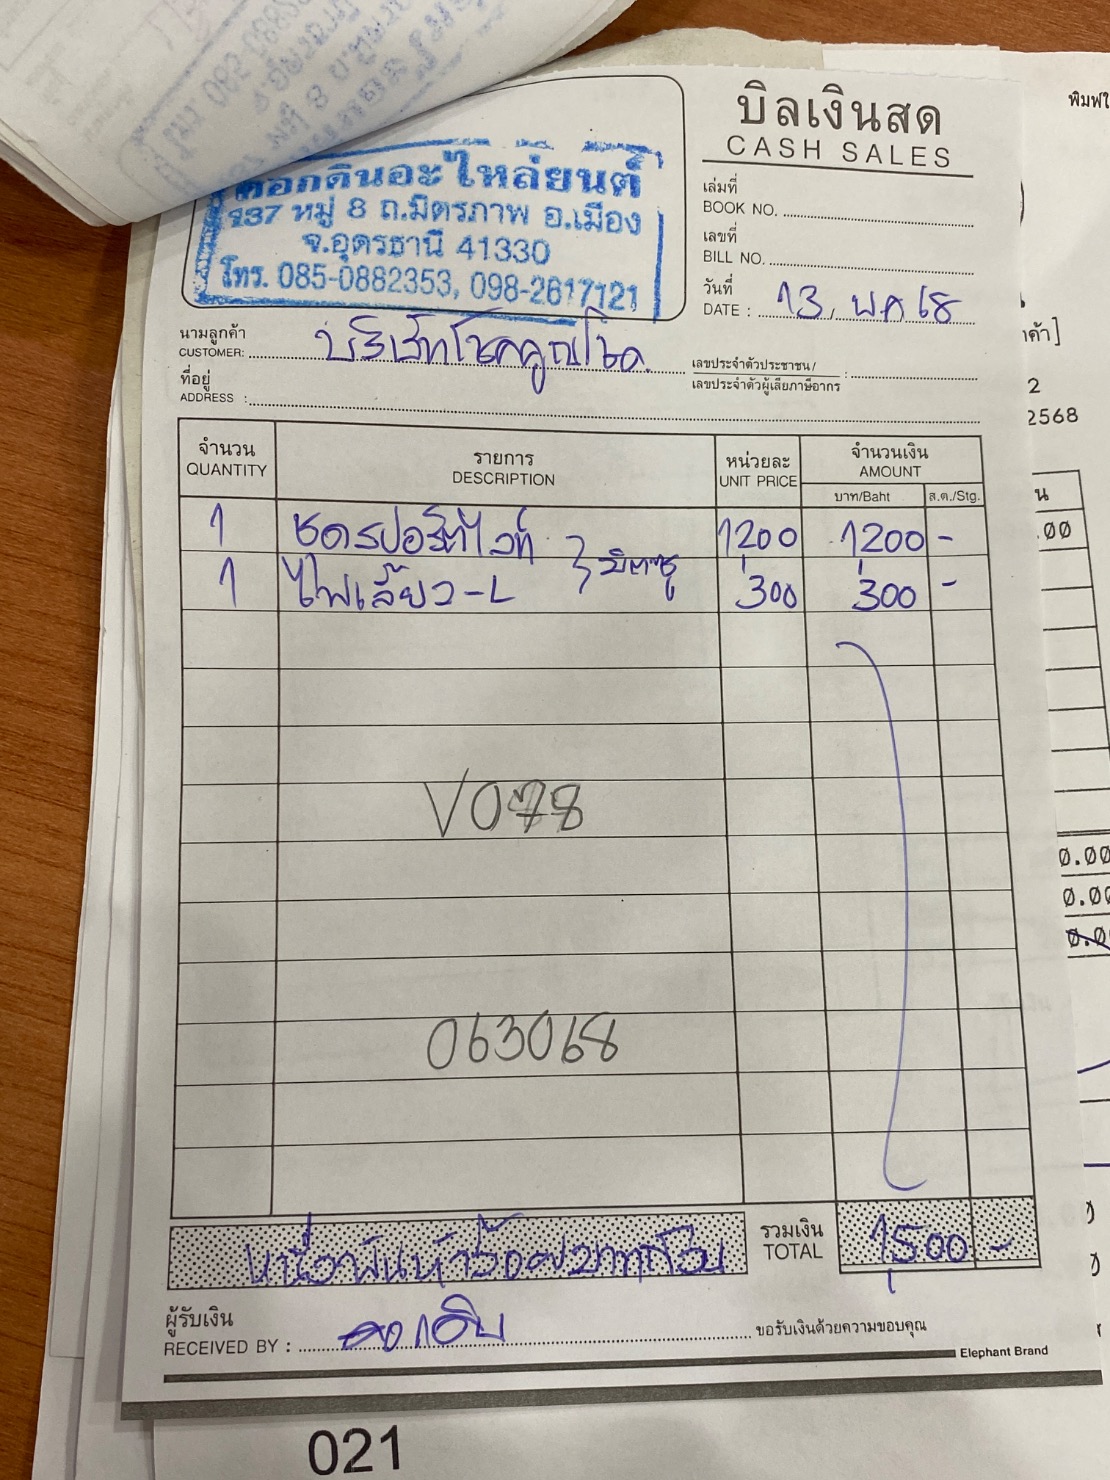 บิลเงินสด
CASH SALES
ดอกดินอะไหล่ยนต์
137 หมู่ 8 ถ.มิตรภาพ อ.เมือง
จ.อุดรธานี 41330
โทร. 085-0882353, 098-2617121
เล่มที่
BOOK NO.
เลขที่
BILL NO.
วันที่
DATE : 13, พค 68
นามลูกค้า
CUSTOMER: บริษัทโชคคูณโชค
เลขประจำตัวประชาชน/
เลขประจำตัวผู้เสียภาษีอากร :
ที่อยู่
ADDRESS :
จำนวน รายการ หน่วยละ จำนวนเงิน
QUANTITY DESCRIPTION UNIT PRICE AMOUNT
บาท/Baht ส.ต./Stg.
1 ชดรปอร์ตไลท์ 1200 1200 -
1 ไฟเลี้ยว-L มิตซู 300 300 -
V078
063068
หนึ่งพันห้าร้อยบาทถ้วน รวมเงิน 1500 -
TOTAL
ผู้รับเงิน
RECEIVED BY : ดอกดิน ขอรับเงินด้วยความขอบคุณ
Elephant Brand
021
พิมพ์ใ
ค้า]
2
2568
น
.00
0.00
0.00